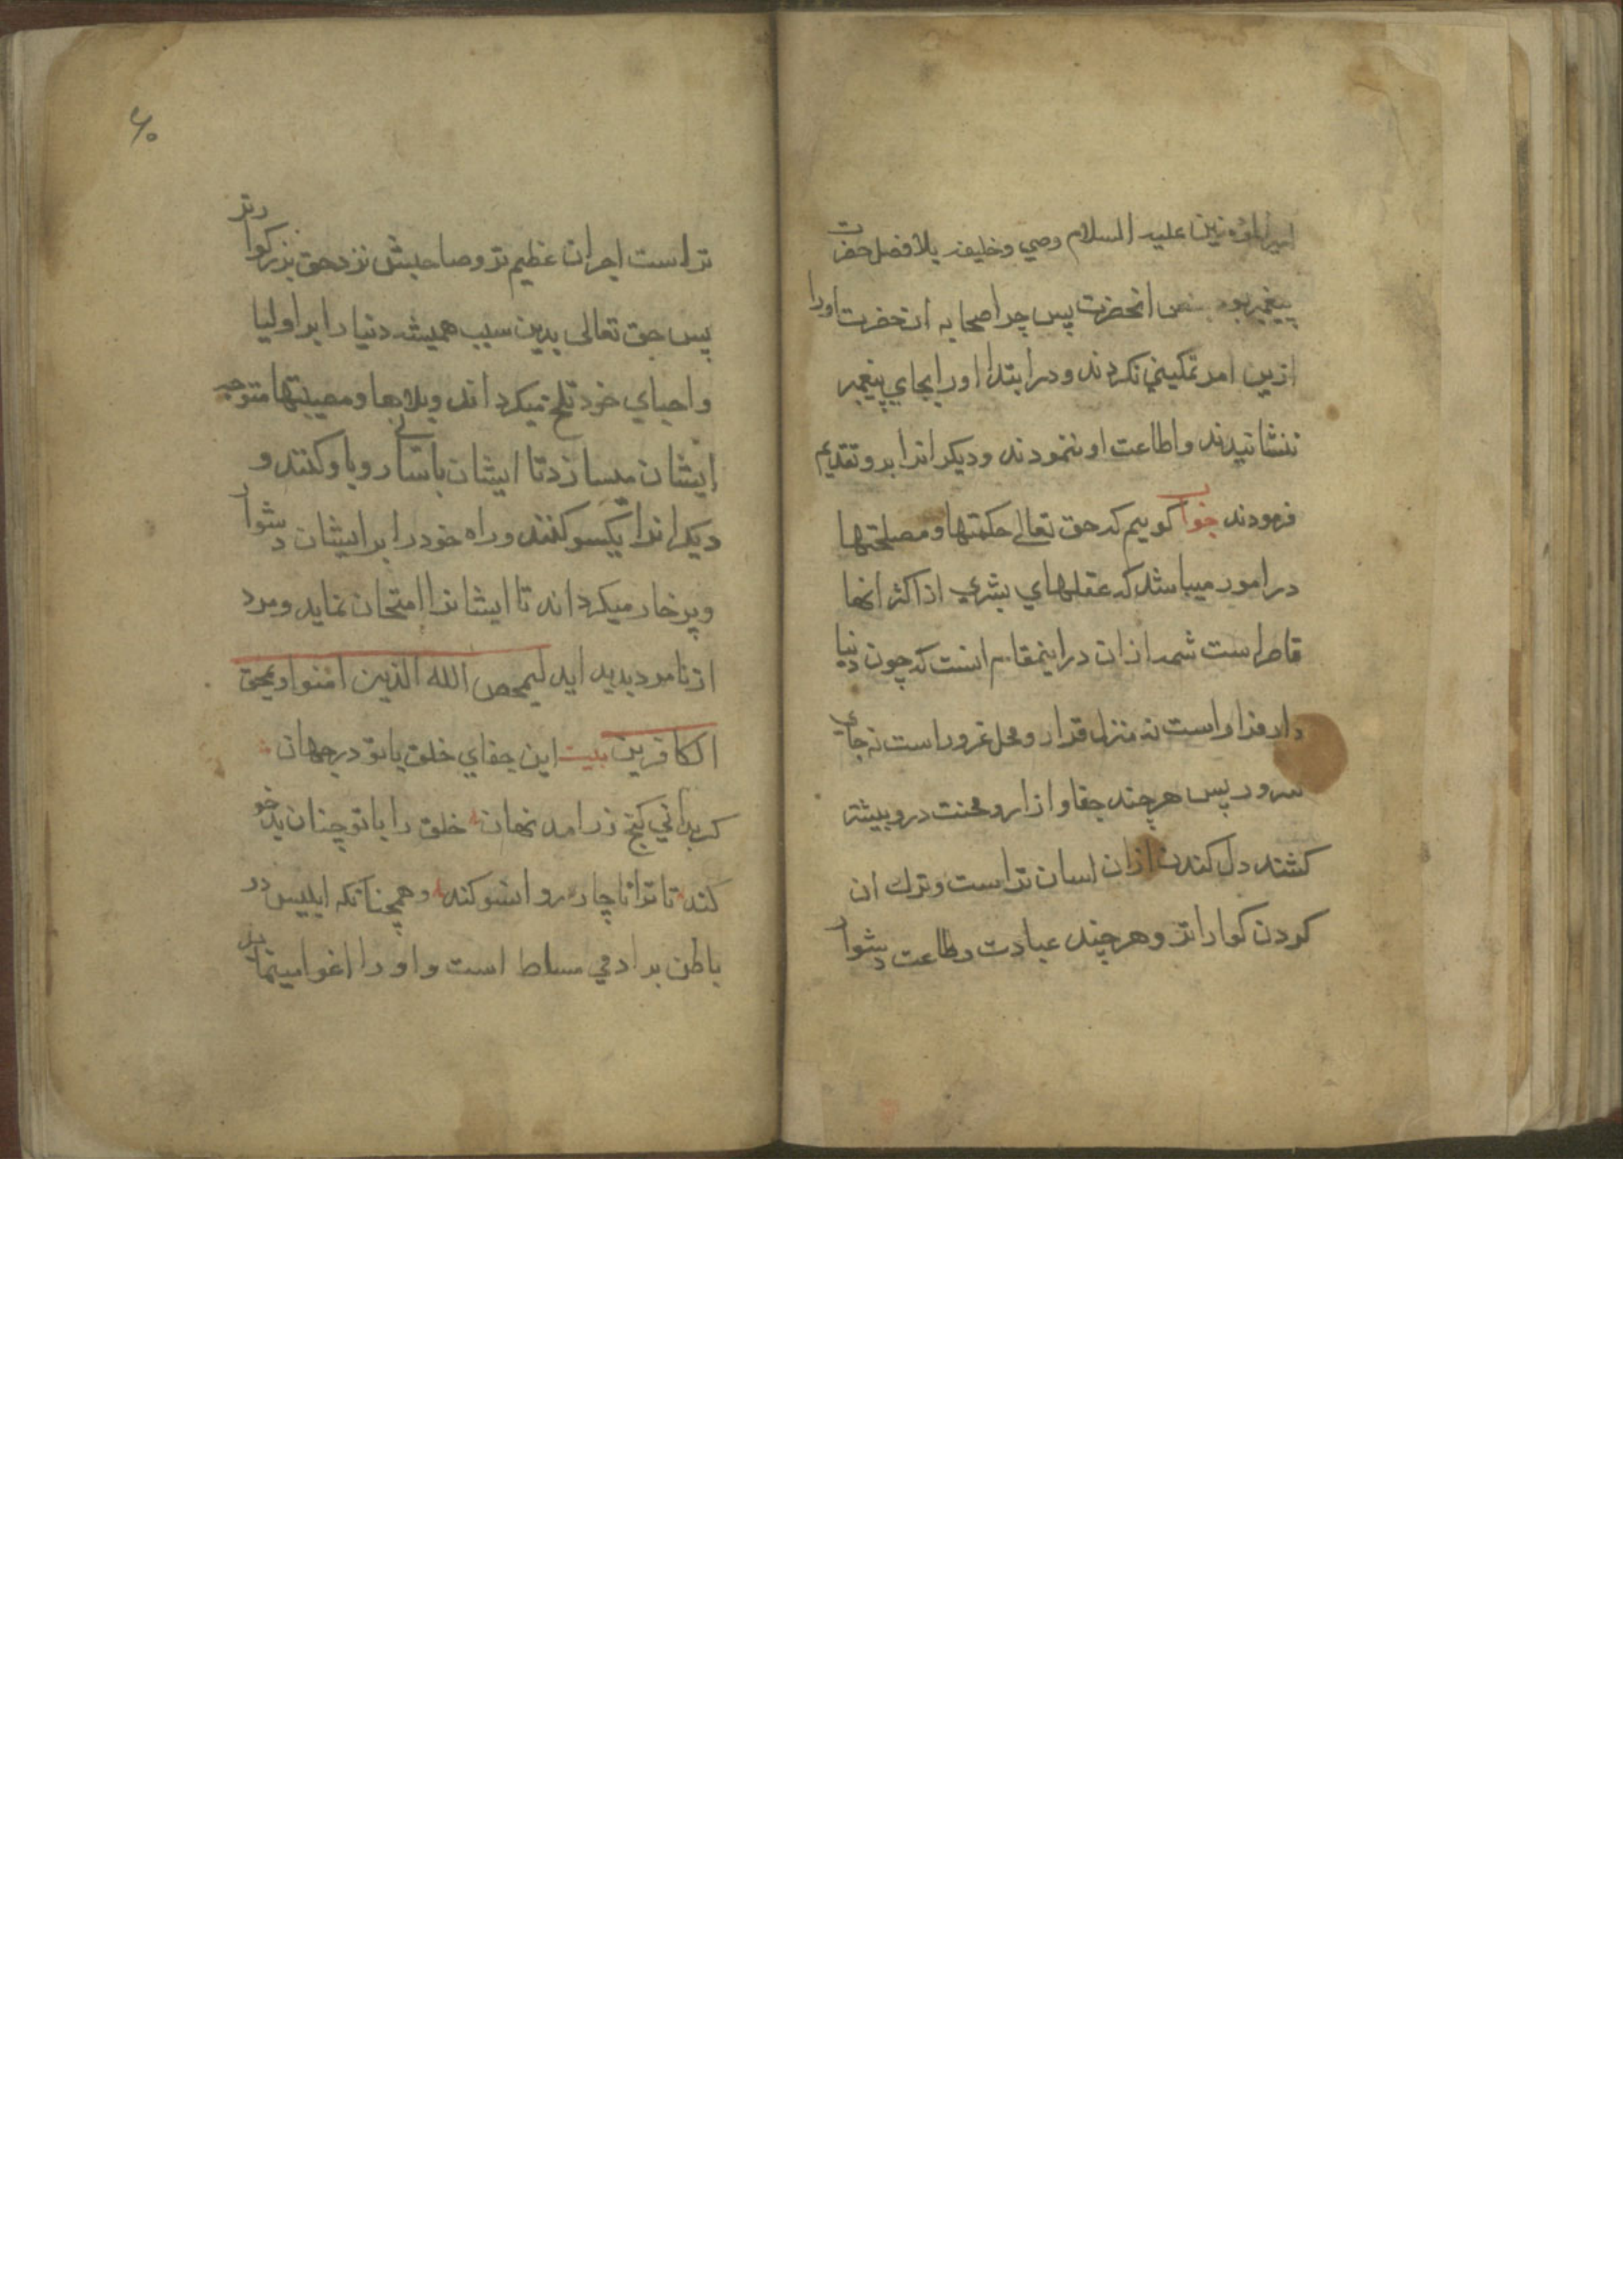 امیرالمؤمنین علیه السلام وصي وخلیفه بلافصل حضرت
پیغمبر بود بنص انحضرت پس چرا صحابه ان حضرت اورا
ازین امر تمکیني نکردند ودر ابتدا اورا بجاي پیغمبر
ننشانیدند واطاعت او ننمودند ودیکرانرا برو تقدیم
فرمودند جواب کوییم که حق تعالی حکمتها ومصلحتها
در امور میباشد که عقلهاي بشري از اکثر انها
قاصر است شمه ازان در اینمقام انست که چون دنیا
دار فرار است نه منزل قرار ومحل غرور است نه جاي
سرور پس هرچند جفا و ازار ومحنت درو بیشتر
کشند دل کندن ازان اسان تر است وترك ان
کردن کواراتر وهرچند عبادت وطاعت دشوار
۶۰
تر است اجر ان عظیم تر وصاحبش نزد حق بزرکوارتر
پس حق تعالی بدین سبب همیشه دنیا را بر اولیا
واحباي خود تلخ میکرداند وبلاها ومصیبتها متوجه
ایشان میسازد تا ایشان باسانی رو باو کنند و
دیکرانرا یکسو کنند وراه خود را بر ایشان دشوار
وپر خار میکرداند تا ایشانرا امتحان نماید ومرد
از نامرد بدید اید لیمحص الله الذین امنوا ویمحق
الکافرین بیت این جفاي خلق با تو در جهان
کر بداني کنج زر امد نهان خلق را با تو چنان بدخو
کند تا ترا ناچار رو انسو کند وهمچنانکه ابلیس در
باطن بر ادمي مسلط است واورا اغوا مینماید